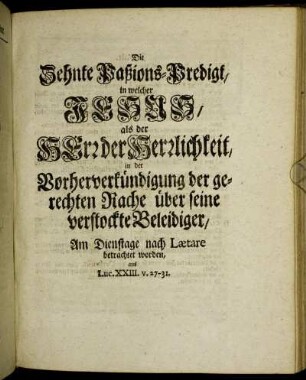 Die
Zehnte Paßions-Predigt,
in welcher
JESUS,
als der
HErr der Herrlichkeit,
in der
Vorherverkündigung der ge-
rechten Rache über seine
verstockte Beleidiger,
Am Dienstage nach Lætare
betrachtet worden,
aus
Luc. XXIII. v. 27-31.